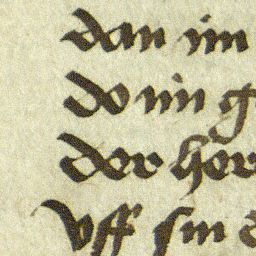 dan im
do nn g
der her
vff sin d